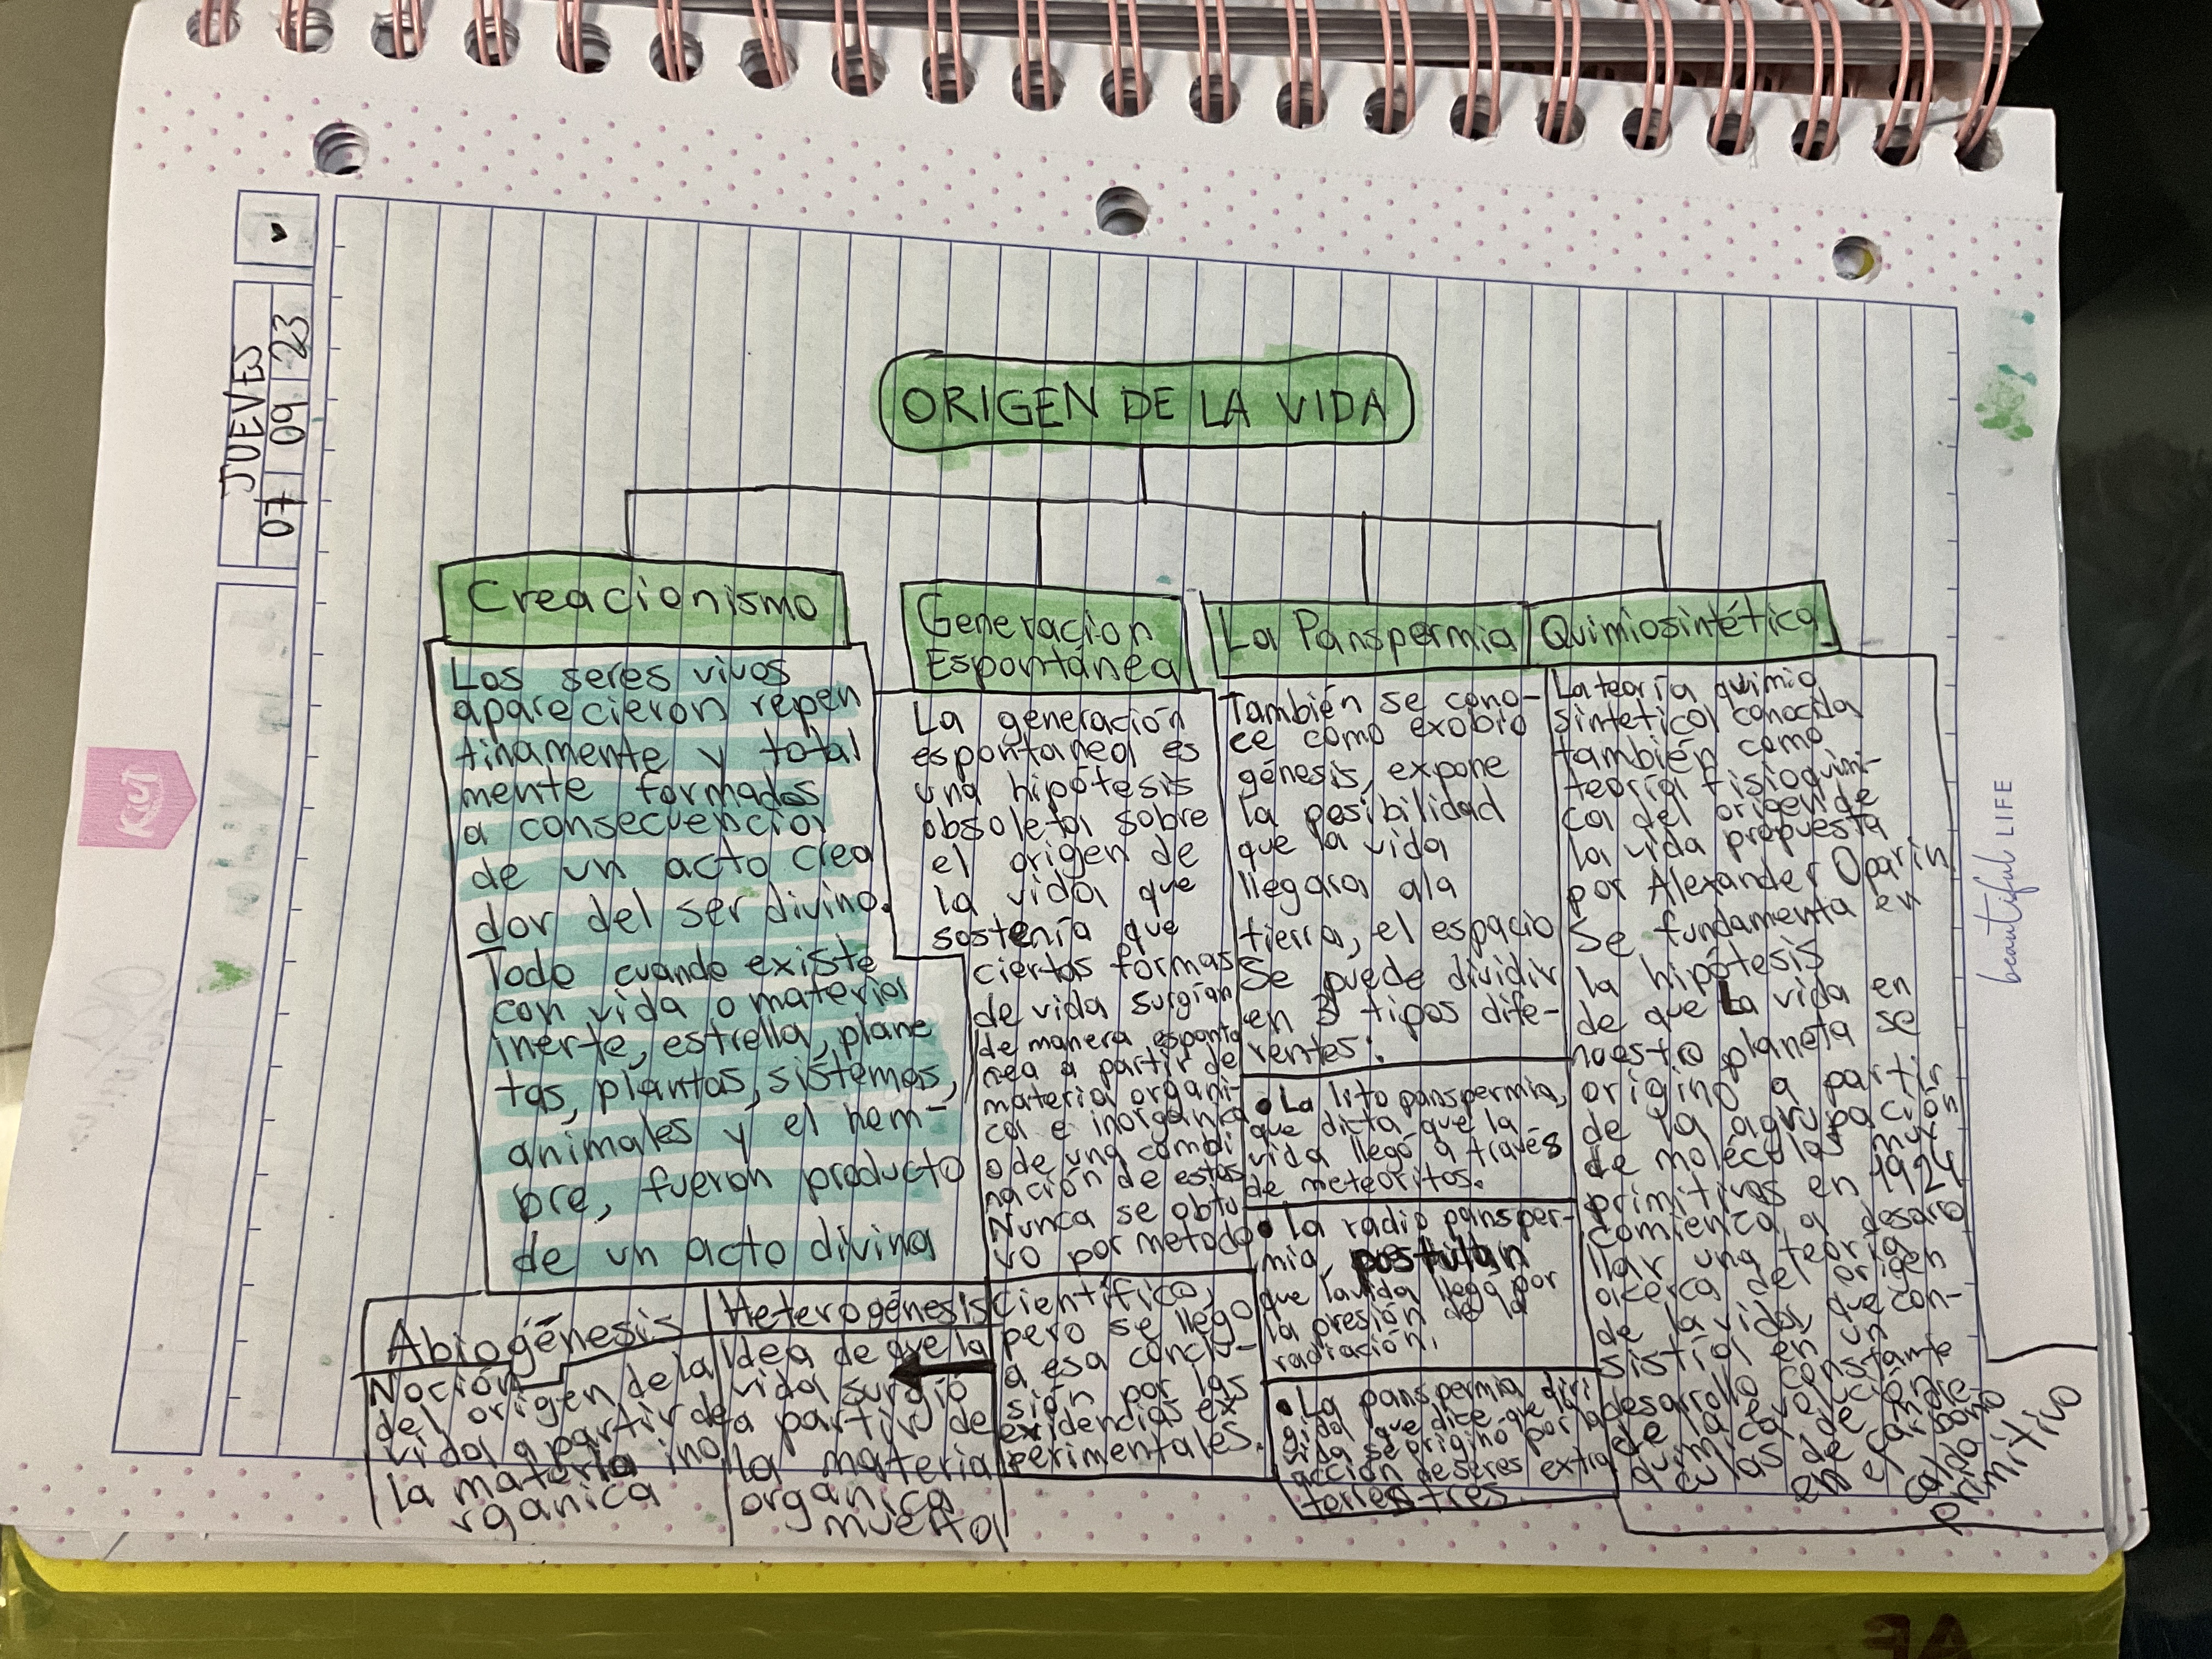 JUEVES
07 09 23
ORIGEN DE LA VIDA
Creacionismo
Los seres vivos
aparecieron repen
tinamente y total
mente formados
a consecuencia
de un acto crea
dor del ser divino.
Todo cuando existe
con vida o materia
inerte, estrella, plane
tas, plantas, sistemas,
animales y el hom-
bre, fueron producto
de un acto divina
Generacion
Espontánea
La generación
espontanea es
una hipótesis
obsoleta sobre
el origen de
la vida que
sostenía que
ciertas formas
de vida surgían
de manera esponta
nea a partir de
materia organi-
ca e inorganica
o de una combi
nación de estas
Nunca se obtu
vo por metodo
cientifico,
pero se llego
a esa conclu-
sión por las
evidencias ex
perimentales.
Abiogénesis
Noción
del origen de la
vida a partir de
la materia ino
rganica
Heterogénesis
Idea de que la
vida surgió
a partir de
la materia
organica
muerta
La Panspermia
También se cono-
ce como exobio
génesis, expone
la posibilidad
que la vida
llegara ala
tierra, el espacio
Se puede dividir
en 3 tipos dife-
rentes:
• La lito panspermia,
que dicta que la
vida llegó a través
de meteoritos.
• la radio pansper-
mia, postulan
que la vida llegó por
la presión de la
radiación.
• La panspermia diri
gida, que dice que la
vida se origino por la
acción de seres extra
terrestres.
Quimiosintética
La teoría quimio
sintetica conocida
también como
teoría fisioquími-
ca del origen de
la vida propuesta
por Alexander Oparin
Se fundamenta en
la hipótesis
de que La vida en
nuestro planeta se
origino a partir
de la agrupación
de moléculas muy
primitivas en 1924
comienza a desaro
llar una teoria
acerca del origen
de la vida, que con-
sistía en un
desarrollo constante
de la evolución
quimica de molé
culas de
en el carbono
caldo
primitivo
Kiut
beautiful LIFE